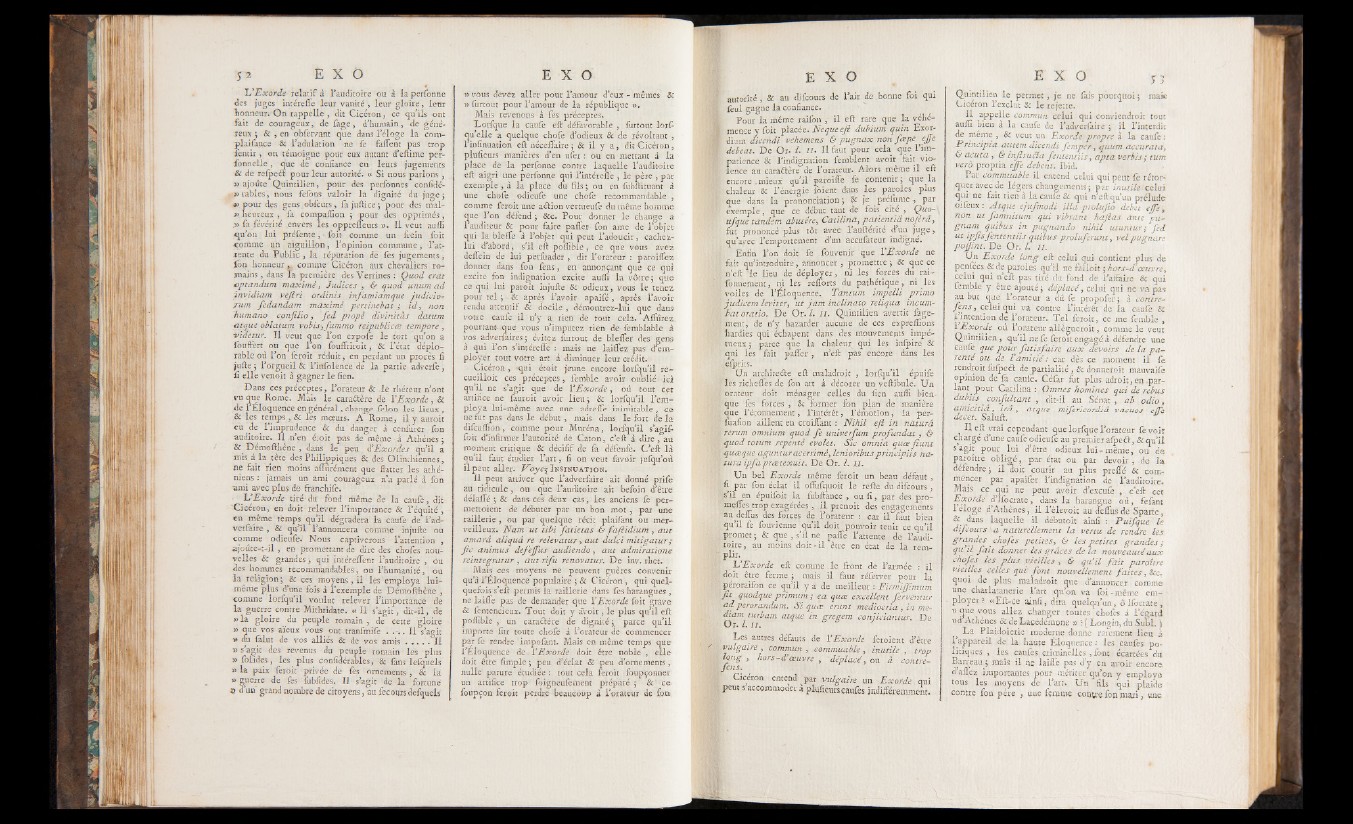 52 E X O
L'Exorde relatif à l'auditoire ou à la perſonne
des juges intéreſſe leur vanité, leur gloire, leur
honneur. On rappelle, dit Cicéron, ce qu'ils ont
fait de courageux, de ſage, d'humain, de géné-
reux ; &, en obſervant que dans l'éloge la com-
plaiſance & l'adulation ne ſe faſſent pas trop
ſentir, on témoigne pour eux autant d'eſtime per-
ſonnelle, que de confiance en leurs jugements
& de reſpect pour leur autorité. » Si nous parlons,
» ajoûte Quintilien, pour des perſonnes conſidé-
» rables, nous feſons valoir la dignité du juge ;
» pour des gens obſcurs, ſa juſtice ; pour des mal-
» heureux, ſa compaſſion ; pour des opprimés,
» ſa ſévérité envers les oppreſſeurs ». Il veut auſſi
qu'on lui préſente, ſoit comme un frein ſoit
comme un aiguillon, l'opinion commune, l'at-
tente du Public, la réputation de ſes jugements,
ſon honneur, comme Cicéron aux chevaliers ro-
mains, dans la première des Verrines : Quod erat
optandum maximè, Judices, & quod unum ad
invidiam veſtri ordinis infamiamque judicio-
rum ſedandam maximè pertinebat ; id, non
humano conſilio, ſed propè divinitùs datum
atque oblatum vobis, ſummo reipublicæ tempore,
videtur. Il veut que l'on expoſe le tort qu'on a
ſouffert ou que l'on ſouffriroit, & l'état déplo-
rable où l'on ſeroit réduit, en perdant un procès ſi
juſte ; l'orgueil & l'inſolence de la partie adverſe,
ſi elle venoit à gagner le ſien.
Dans ces préceptes, l'orateur & le rhéteur n'ont
vu que Rome. Mais le caractère de l'Exorde, &
de l'Éloquence en général, change ſelon les lieux,
& les temps, & les mœurs. A Rome, il y auroit
eu de l'imprudence & du danger à cenſurer ſon
auditoire. Il n'en étoit pas de même à Athènes ;
& Démoſthène, dans le peu d'Exordes qu'il a
mis à la tête des Philippiques & des Olinthiennes,
ne fait rien moins aſſurément que flatter les athé-
niens : jamais un ami courageux n'a parlé à ſon
ami avec plus de franchiſe.
L'Exorde tiré du fond même de la cauſe, dit
Cicéron, en doit relever l'importance & l'équité,
en même temps qu'il dégradera la cauſe de l'ad-
verſaire, & qu'il l'annoncera comme injuſte ou
comme odieuſe. Nous captiverons l'attention,
ajoûte-t-il, en promettant de dire des choſes nou-
velles & grandes, qui intéreſſent l'auditoire, ou
des hommes recommandables, ou l'humanité, ou
la religion ; & ces moyens, il les employa lui-
même plus d'une fois à l'exemple de Démoſthène,
comme lorſqu'il voulut relever l'importance de
la guerre contre Mithridate. » Il s'agit, dit-il, de
» la gloire du peuple romain, de cette gloire
» que vos aïeux vous ont tranſmiſe .... Il s'agit
» du ſalut de vos alliés & de vos amis ..... Il
» s'agit des revenus du peuple romain les plus
» ſolides, les plus conſidérables, & ſans leſquels
» la paix ſeroit privée de ſes ornements, & la
» guerre de ſes ſubſides. Il s'agit de la fortune
» d'un grand nombre de citoyens, au ſecours deſquels
E X O
» vous devez aller pour l'amour d'eux-mêmes &
» ſurtout pour l'amour de la république ».
Mais revenons à ſes préceptes.
Lorſque la cauſe eſt défavorable, ſurtout lorſ-
qu'elle a quelque choſe d'odieux & de révoltant,
l'inſinuation eſt néceſſaire ; & il y a, dit Cicéron,
pluſieurs manières d'en uſer : ou en mettant à la
place de la perſonne contre laquelle l'auditoire
eſt aigri une perſonne qui l'intéreſſe, le père, par
exemple, à la place du fils ; ou en ſubſtituant à
une choſe odieuſe une choſe recommandable,
comme ſeroit une action vertueuſe du même homme
que l'on défend ; &c. Pour donner le change à
l'auditeur & pour faire paſſer ſon ame de l'objet
qui la bleſſe à l'objet qui peut l'adoucir, cachez-
lui d'abord, s'il eſt poſſible, ce que vous avez
deſſein de lui perſuader, dit l'orateur : paroiſſez
donner dans ſon ſens, en annonçant que ce qui
excite ſon indignation excite auſſi la vôtre ; que
ce qui lui paroît injuſte & odieux, vous le tenez
pour tel ; & après l'avoir apaiſé, après l'avoir
rendu attentif & docile, démontrez-lui que dans
votre cauſe il n'y a rien de tout cela. Aſſûrez
pourtant que vous n'imputez rien de ſemblable à
vos adverſaires ; évitez ſurtout de bleſſer des gens
à qui l'on s'intéreſſe : mais ne laiſſez pas d'em-
ployer tout votre art à diminuer leur crédit.
Cicéron, qui étoit jeune encore lorſqu'il re-
cueilloit ces préceptes, ſemble avoir oublié ici
qu'il ne s'agit que de l'Exorde, où tout cet
artifice ne ſauroit avoir lieu ; & lorſqu'il l'em-
ploya lui-même avec une adreſſe inimitable, ce
ne fut pas dans le début, mais dans le fort de la
diſcuſſion, comme pour Muréna, lorſqu'il s'agiſ-
ſoit d'infirmer l'autorité de Caton, c'eſt à dire, au
moment critique & déciſif de ſa défenſe. C'eſt là
qu'il faut étudier l'art, ſi on veut ſavoir juſqu'où
il peut aller. Voyez INSINUATION.
Il peut arriver que l'adverſaire ait donné priſe
au ridicule, ou que l'auditoire ait beſoin d'être
délaſſé ; & dans ces deux cas, les anciens ſe per-
mettoient de débuter par un bon mot, par une
raillerie, ou par quelque récit plaiſant ou mer-
veilleux. Nam ut cibi ſatietas & faſtidium, aut
amarâ aliquâ re relevatur, aut dulci mitigatur ;
ſic animus defeſſus audiendo, aut admiratione
reintegratur, aut riſu renovatur. De inv. rhet.
Mais ces moyens ne peuvent guères convenir
qu'à l'Éloquence populaire ; & Cicéron, qui quel-
quefois s'eſt permis la raillerie dans ſes harangues,
ne laiſſe pas de demander que l'Exorde ſoit grave
& ſentencieux. Tout doit y avoir, le plus qu'il eſt
poſſible, un caractère de dignité ; parce qu'il
importe ſur toute choſe à l'orateur de commencer
par ſe rendre impoſant. Mais en même temps que
l'Éloquence de l'Exorde doit être noble, elle
doit être ſimple ; peu d'éclat & peu d'ornements,
nulle parure étudiée : tout cela feroit ſoupçonner
un artifice trop ſoigneuſement préparé ; & ce
ſoupçon feroit perdre beaucoup à l'orateur de ſon
E X O
autorité, & au diſcours de l'air de bonne foi qui
ſeul gagne la confiance.
Pour la même raiſon, il eſt rare que la véhé-
mence y ſoit placée. Neque eſt dubium quin Exor-
dium dicendi vehemens & pugnax non ſæpe eſſe
debeat. De Or. l. II. Il faut pour cela que l'im-
patience & l'indignation ſemblent avoir fait vio-
lence au caractère de l'orateur. Alors même il eſt
encore mieux qu'il paroiſſe ſe contenir ; que la
chaleur & l'énergie ſoient dans les paroles plus
que dans la prononciation ; & je préſume, par
exemple, que ce début tant de fois cité, Quo-
uſque tandem abutêre, Catilina, patientiâ noſtrâ,
fut prononcé plus tôt avec l'auſtérité d'un juge,
qu'avec l'emportement d'un accuſateur indigné.
Enfin l'on doit ſe ſouvenir que l'Exorde ne
fait qu'introduire, annoncer, promettre ; & que ce
n'eſt le lieu de déployer, ni les forces du rai-
ſonnement, ni les reſſorts du pathétique, ni les
voiles de l'Éloquence. Tantum impelli primo
judicem leviter, ut jam inclinato reliqua incum-
bat oratio. De Or. l. II. Quintilien avertit ſage-
ment, de n'y hazarder aucune de ces expreſſions
hardies qui échapent dans des mouvements impé-
tueux ; parce que la chaleur qui les inſpire &
qui les fait paſſer, n'eſt pas encore dans les
eſprits.
Un architecte eſt maladroit, lorſqu'il épuiſe
les richeſſes de ſon art à décorer un veſtibule. Un
orateur doit ménager celles du ſien auſſi bien
que ſes forces, & former ſon plan de manière
que l'étonnement, l'intérêt, l'émotion, la per-
ſuaſion aillent en croiſſant : Nihil eſt in naturâ
rerum omnium quod ſe univerſum profundat, &
quod totum repentè evolet. Sic omnia quæ fiunt
quæque aguntur acerrimè, lenioribus principiis na-
tura ipſa prætexuit. De Or. l. II.
Un bel Exorde même ſeroit un beau défaut,
ſi par ſon éclat il offuſquoit le reſte du diſcours,
s'il en épuiſoit la ſubſtance, ou ſi, par des pro-
meſſes trop exagérées, il prenoit des engagements
au deſſus des forces de l'orateur : car il faut bien
qu'il ſe ſouvienne qu'il doit pouvoir tenir ce qu'il
promet ; & que, s'il ne paſſe l'attente de l'audi-
toire, au moins doit-il être en état de la rem-
plir.
L'Exorde eſt comme le front de l'armée : il
doit être ferme ; mais il faut réſerver pour la
péroraiſon ce qu'il y a de meilleur : Firmiſſimum
ſit quodque primum ; ea quæ excellent ſerventur
ad perorandum. Si quæ erunt mediocria, in me-
diam turbam atque in gregem conjiciantur. De
Or. l. II.
Les autres défauts de l'Exorde ſeroient d'être
vulgaire, commun, commuable, inutile, trop
long, hors-d'œuvre, déplacé, ou à contre-
ſens.
Cicéron entend par vulgaire un Exorde qui
peut s'accommoder à pluſieurs cauſes indifféremment.
E X O 53
Quintilien le permet, je ne ſais pourquoi ; mais
Cicéron l'exclut & le rejette.
Il appelle commun celui qui conviendroit tout
auſſi bien à la cauſe de l'adverſaire ; il l'interdit
de même, & veut un Exorde propre à la cauſe :
Principia autem dicendi ſemper, quum accurata,
& acuta, & inſtructa ſententiis, apta verbis ; tum
verò propria eſſe debent. Ibid.
Par commuable il entend celui qui peut ſe rétor-
quer avec de légers changements ; par inutile celui
qui ne fait rien à la cauſe & qui n'eſt qu'un prélude
oiſeux : Atque ejuſmodi illa proluſio debet eſſe,
non ut ſamnitum qui vibrant haſtas ante pu-
gnam quibus in pugnando nihil utuntur ; ſed
ut ipſis ſententiis quibus proluſerunt, vel pugnare
poſſint. De Or. l. II.
Un Exorde long eſt celui qui contient plus de
penſées & de paroles qu'il ne falloit ; hors-d'œuvre,
celui qui n'eſt pas tiré du fond de l'affaire & qui
ſemble y être ajouté ; déplacé, celui qui ne va pas
au but que l'orateur a dû ſe propoſer ; à contre-
ſens, celui qui va contre l'intérêt de la cauſe &
l'intention de l'orateur. Tel ſeroit, ce me ſemble,
l'Exorde où l'orateur allègueroit, comme le veut
Quintilien, qu'il ne ſe ſeroit engagé à défendre une
cauſe que pour ſatisfaire aux devoirs de la pa-
renté ou de l'amitié : car dès ce moment il ſe
rendroit ſuſpect de partialité, & donneroit mauvaiſe
opinion de ſa cauſe. Céſar fut plus adroit, en par-
lant pour Catilina : Omnes homines qui de rebus
dubiis conſultant, dit-il au Sénat, ab odio,
amicitiâ, irâ, atque miſericordiâ vacuos eſſe
decet. Saluſt.
Il eſt vrai cependant que lorſque l'orateur ſe voit
chargé d'une cauſe odieuſe au premier aſpect, & qu'il
s'agit pour lui d'être odieux lui-même, ou de
paroître obligé, par état ou par devoir, de la
défendre ; il doit courir au plus preſſé & com-
mencer par apaiſer l'indignation de l'auditoire.
Mais ce qui ne peut avoir d'excuſe, c'eſt cet
Exorde d'Iſocrate, dans la harangue où, feſant
l'éloge d'Athènes, il l'élevoit au deſſus de Sparte,
& dans laquelle il débutoit ainſi : Puiſque le
diſcours a naturellement la vertu de rendre les
grandes choſes petites, & les petites grandes ;
qu'il ſait donner les grâces de la nouveauté aux
choſes les plus vieilles, & qu'il fait paroître
vieilles celles qui ſont nouvellement faites, &c.
quoi de plus maladroit que d'annoncer comme
une charlatanerie l'art qu'on va ſoi-même em-
ployer ? » Eſt-ce ainſi, dira quelqu'un, ô Iſocrate,
» que vous allez changer toutes choſes à l'égard
» d'Athènes & de Lacédémone » ? (Longin, du Subl.)
La Plaidoierie moderne donne rarement lieu à
l'appareil de la haute Éloquence : les cauſes po-
litiques, les cauſes criminelles, ſont écartées du
Barreau ; mais il ne laiſſe pas d'y en avoir encore
d'aſſez importantes pour mériter qu'on y employe
tous les moyens de l'art. Un fils qui plaide
contre ſon père, une femme contre ſon mari, une